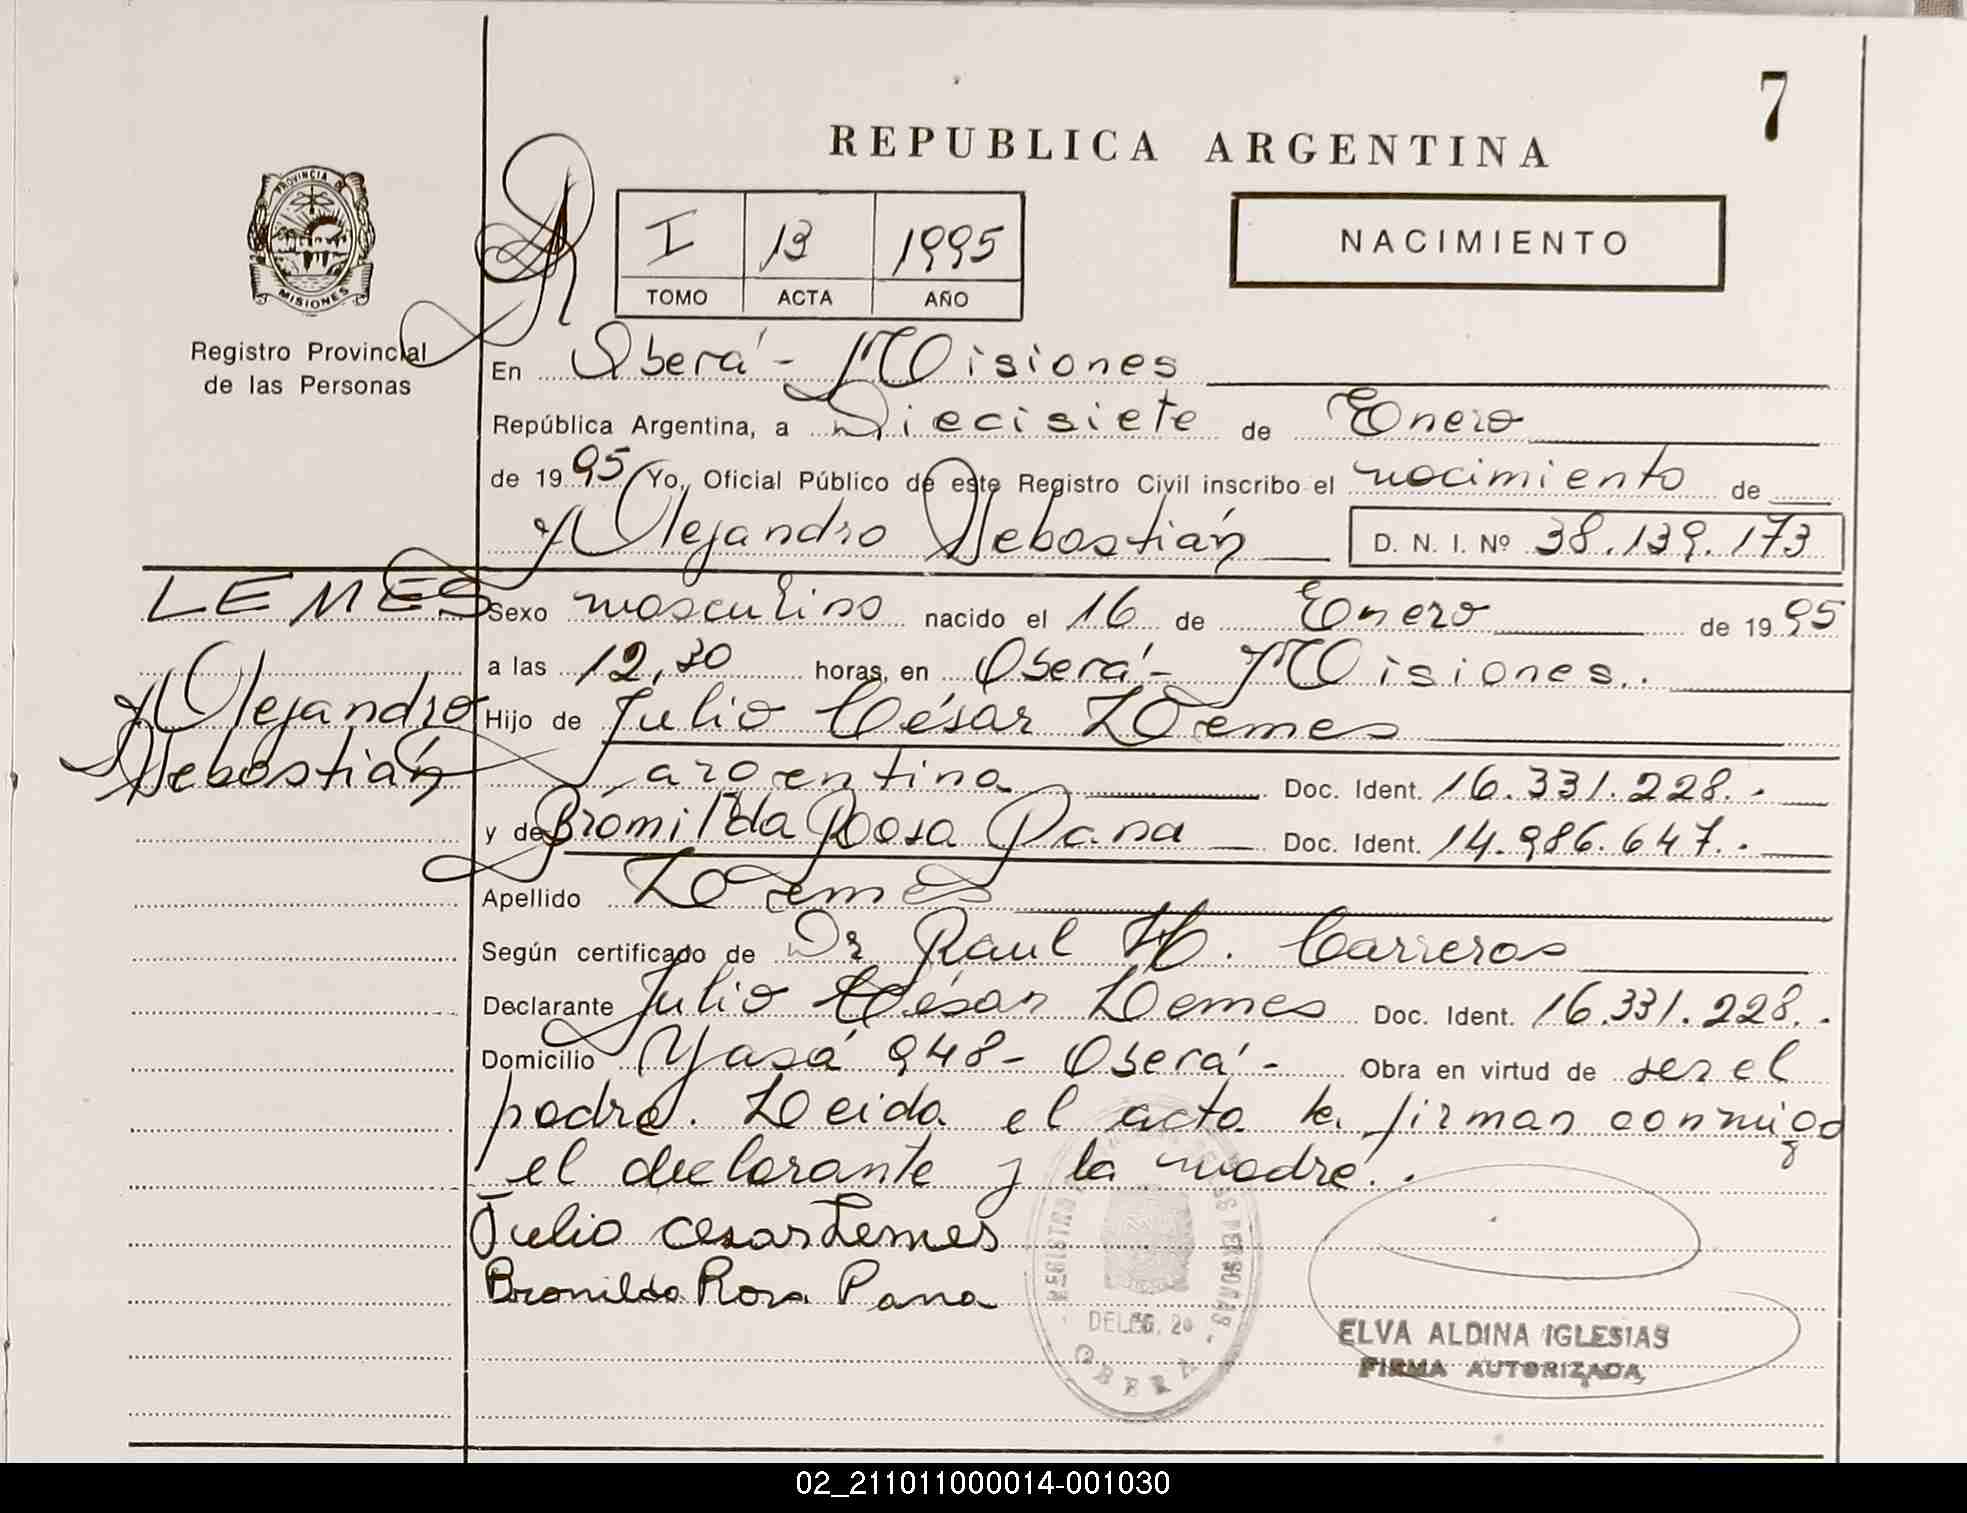 7
REPUBLICA ARGENTINA
PROVINCIA DE
MISIONES
Registro Provincial
de las Personas
I 13 1995
TOMO ACTA AÑO
NACIMIENTO
En Oberá - Misiones
República Argentina, a Diecisiete de Enero
de 1995 Yo, Oficial Público de este Registro Civil inscribo el nacimiento de
Alejandro Sebastián D. N. I. Nº 38.139.173
LEMES
Alejandro
Sebastián
Sexo masculino nacido el 16 de Enero de 1995
a las 12,30 horas, en Oberá - Misiones..
Hijo de Julio César Lemes
argentina Doc. Ident. 16.331.228. -
y de Bromilda Rosa Pana Doc. Ident. 14.986.647. -
Apellido Lemes
Según certificado de Dr Raul H. Carreros
Declarante Julio César Lemes Doc. Ident. 16.331.228. -
Domicilio Yasá 948 - Oberá - Obra en virtud de ser el
padre. Leida el acta la firman conmigo
el declarante y la madre. -
Julio Cesar Lemes
Bronilda Rosa Pana
REGISTRO PERSONAS
DELEG. 20
OBERA
ELVA ALDINA IGLESIAS
FIRMA AUTORIZADA
02_211011000014-001030